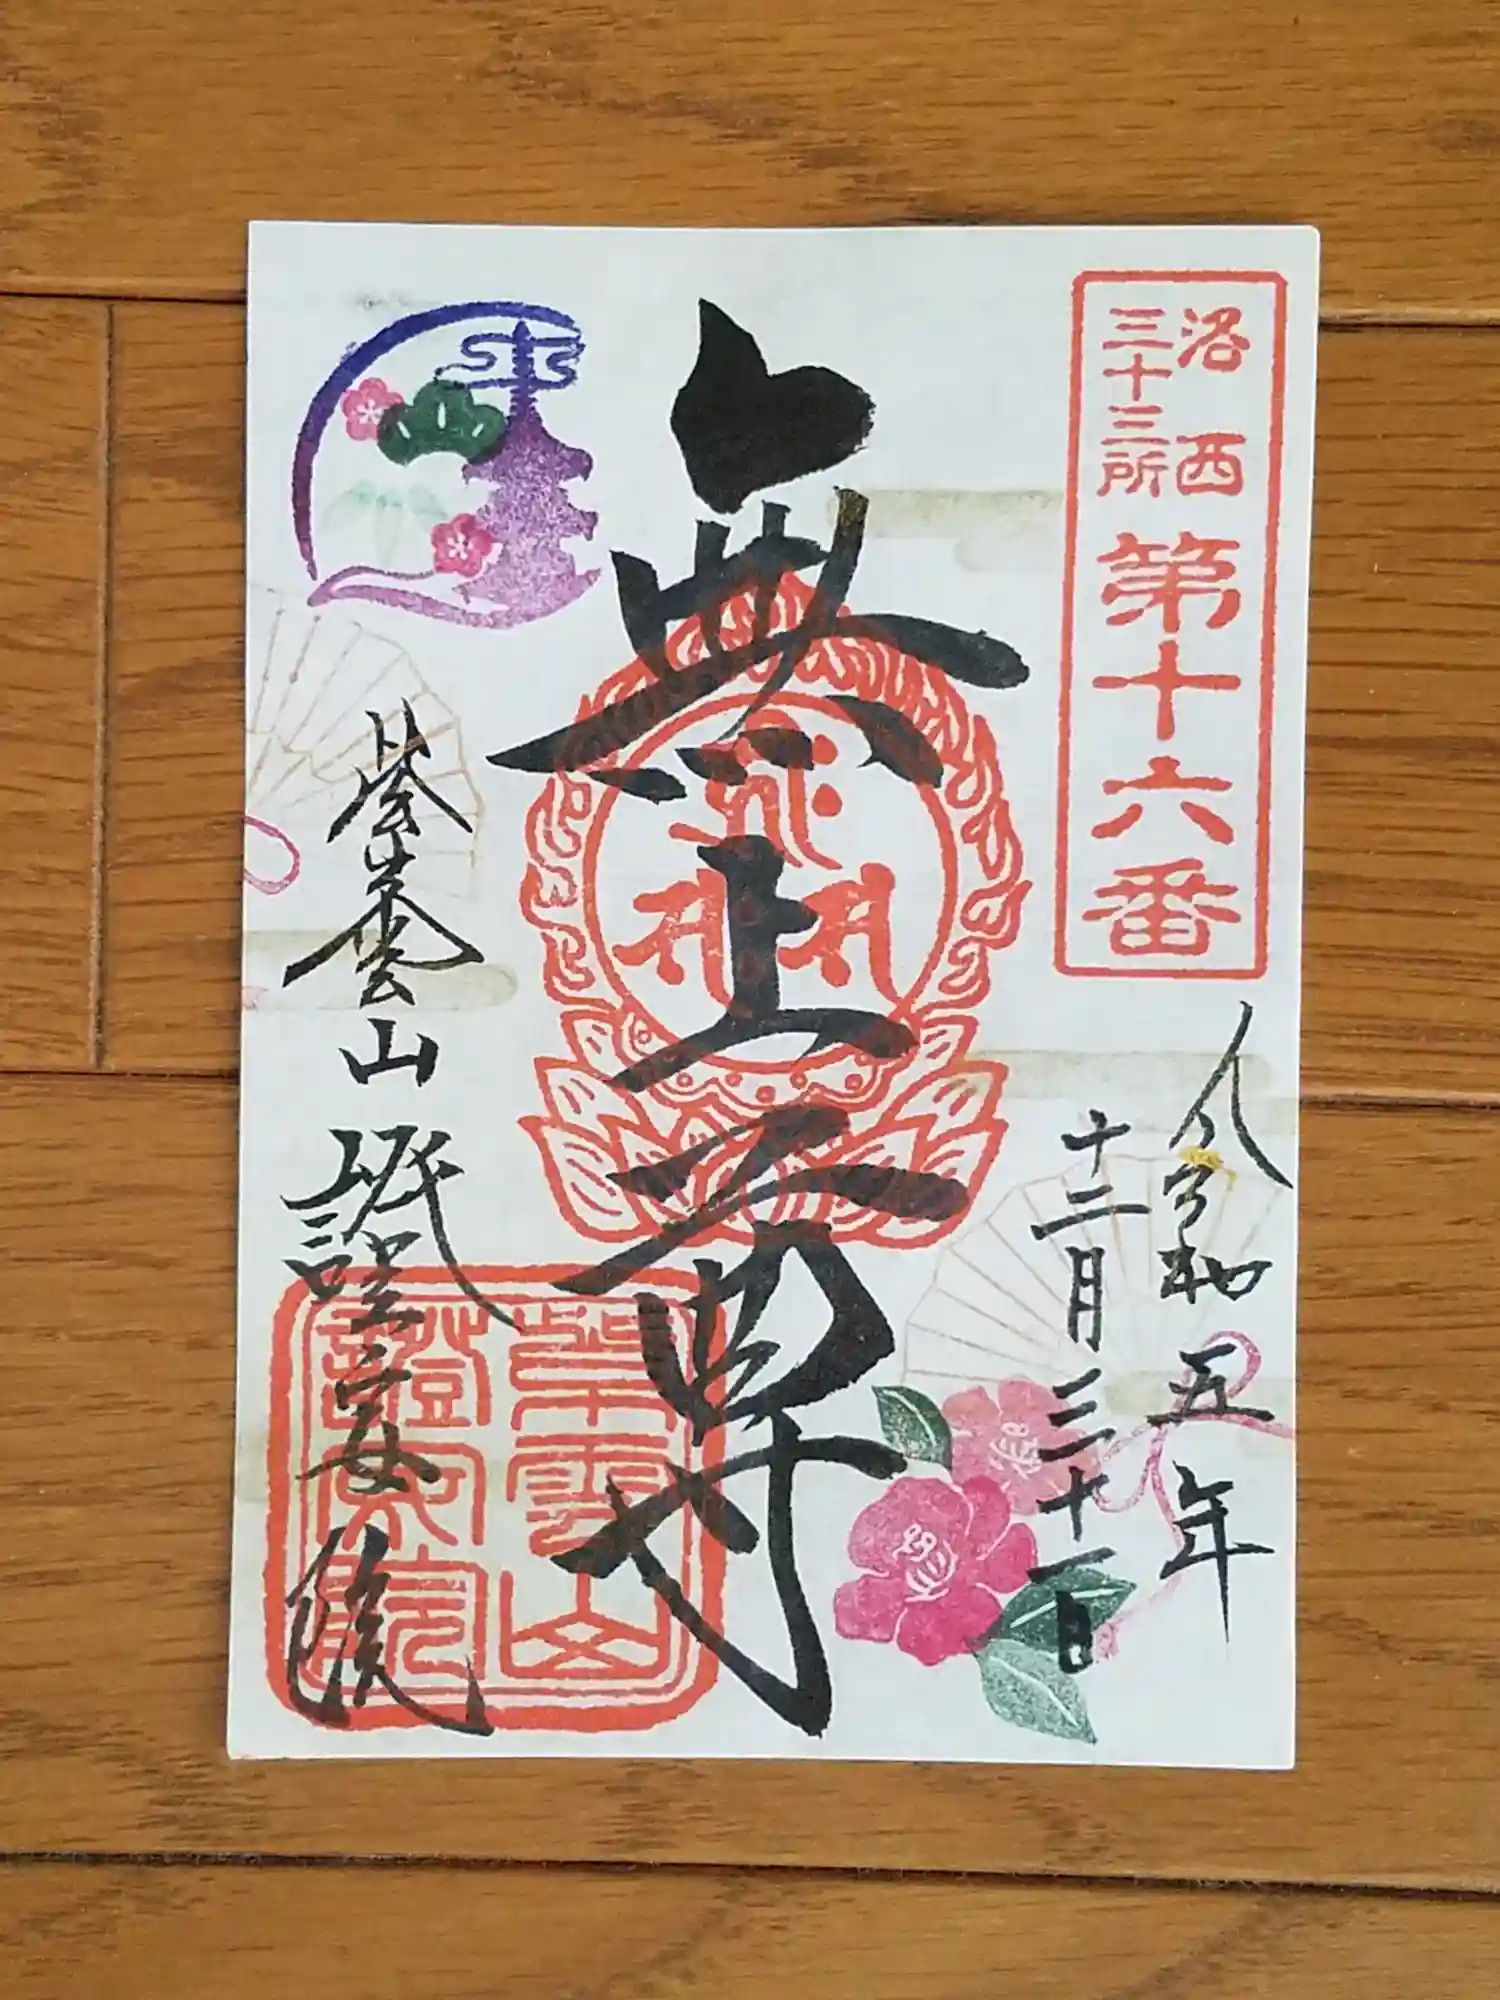 洛西
三十三所
第十六番
令和五年
十二月三十一日
無上尊
紫雲山
證安院
紫雲山 證安院